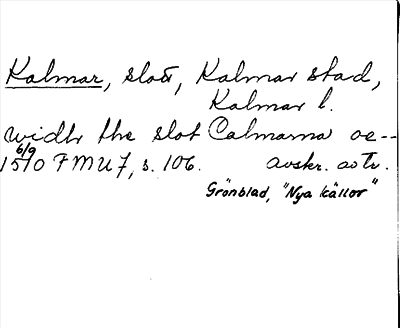 Kalmar, slott, Kalmar stad,
Kalmar l.
widh the slot Calmarna oc--
6/9
1510 FMU 7, s. 106. avskr. av tr.
Grönblad, "Nya källor"